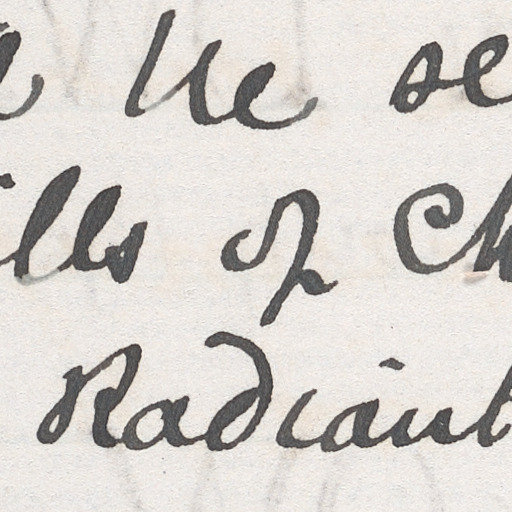 he se
ills of Ch
Radiant